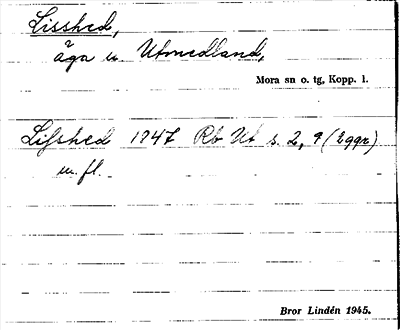 Lisshed,
äga u. Utmedland,
Mora sn o. tg, Kopp. l.
Lifshed 1847 Rb Ut s. 2, 9 (Eggr)
m. fl.
Bror Lindén 1945.